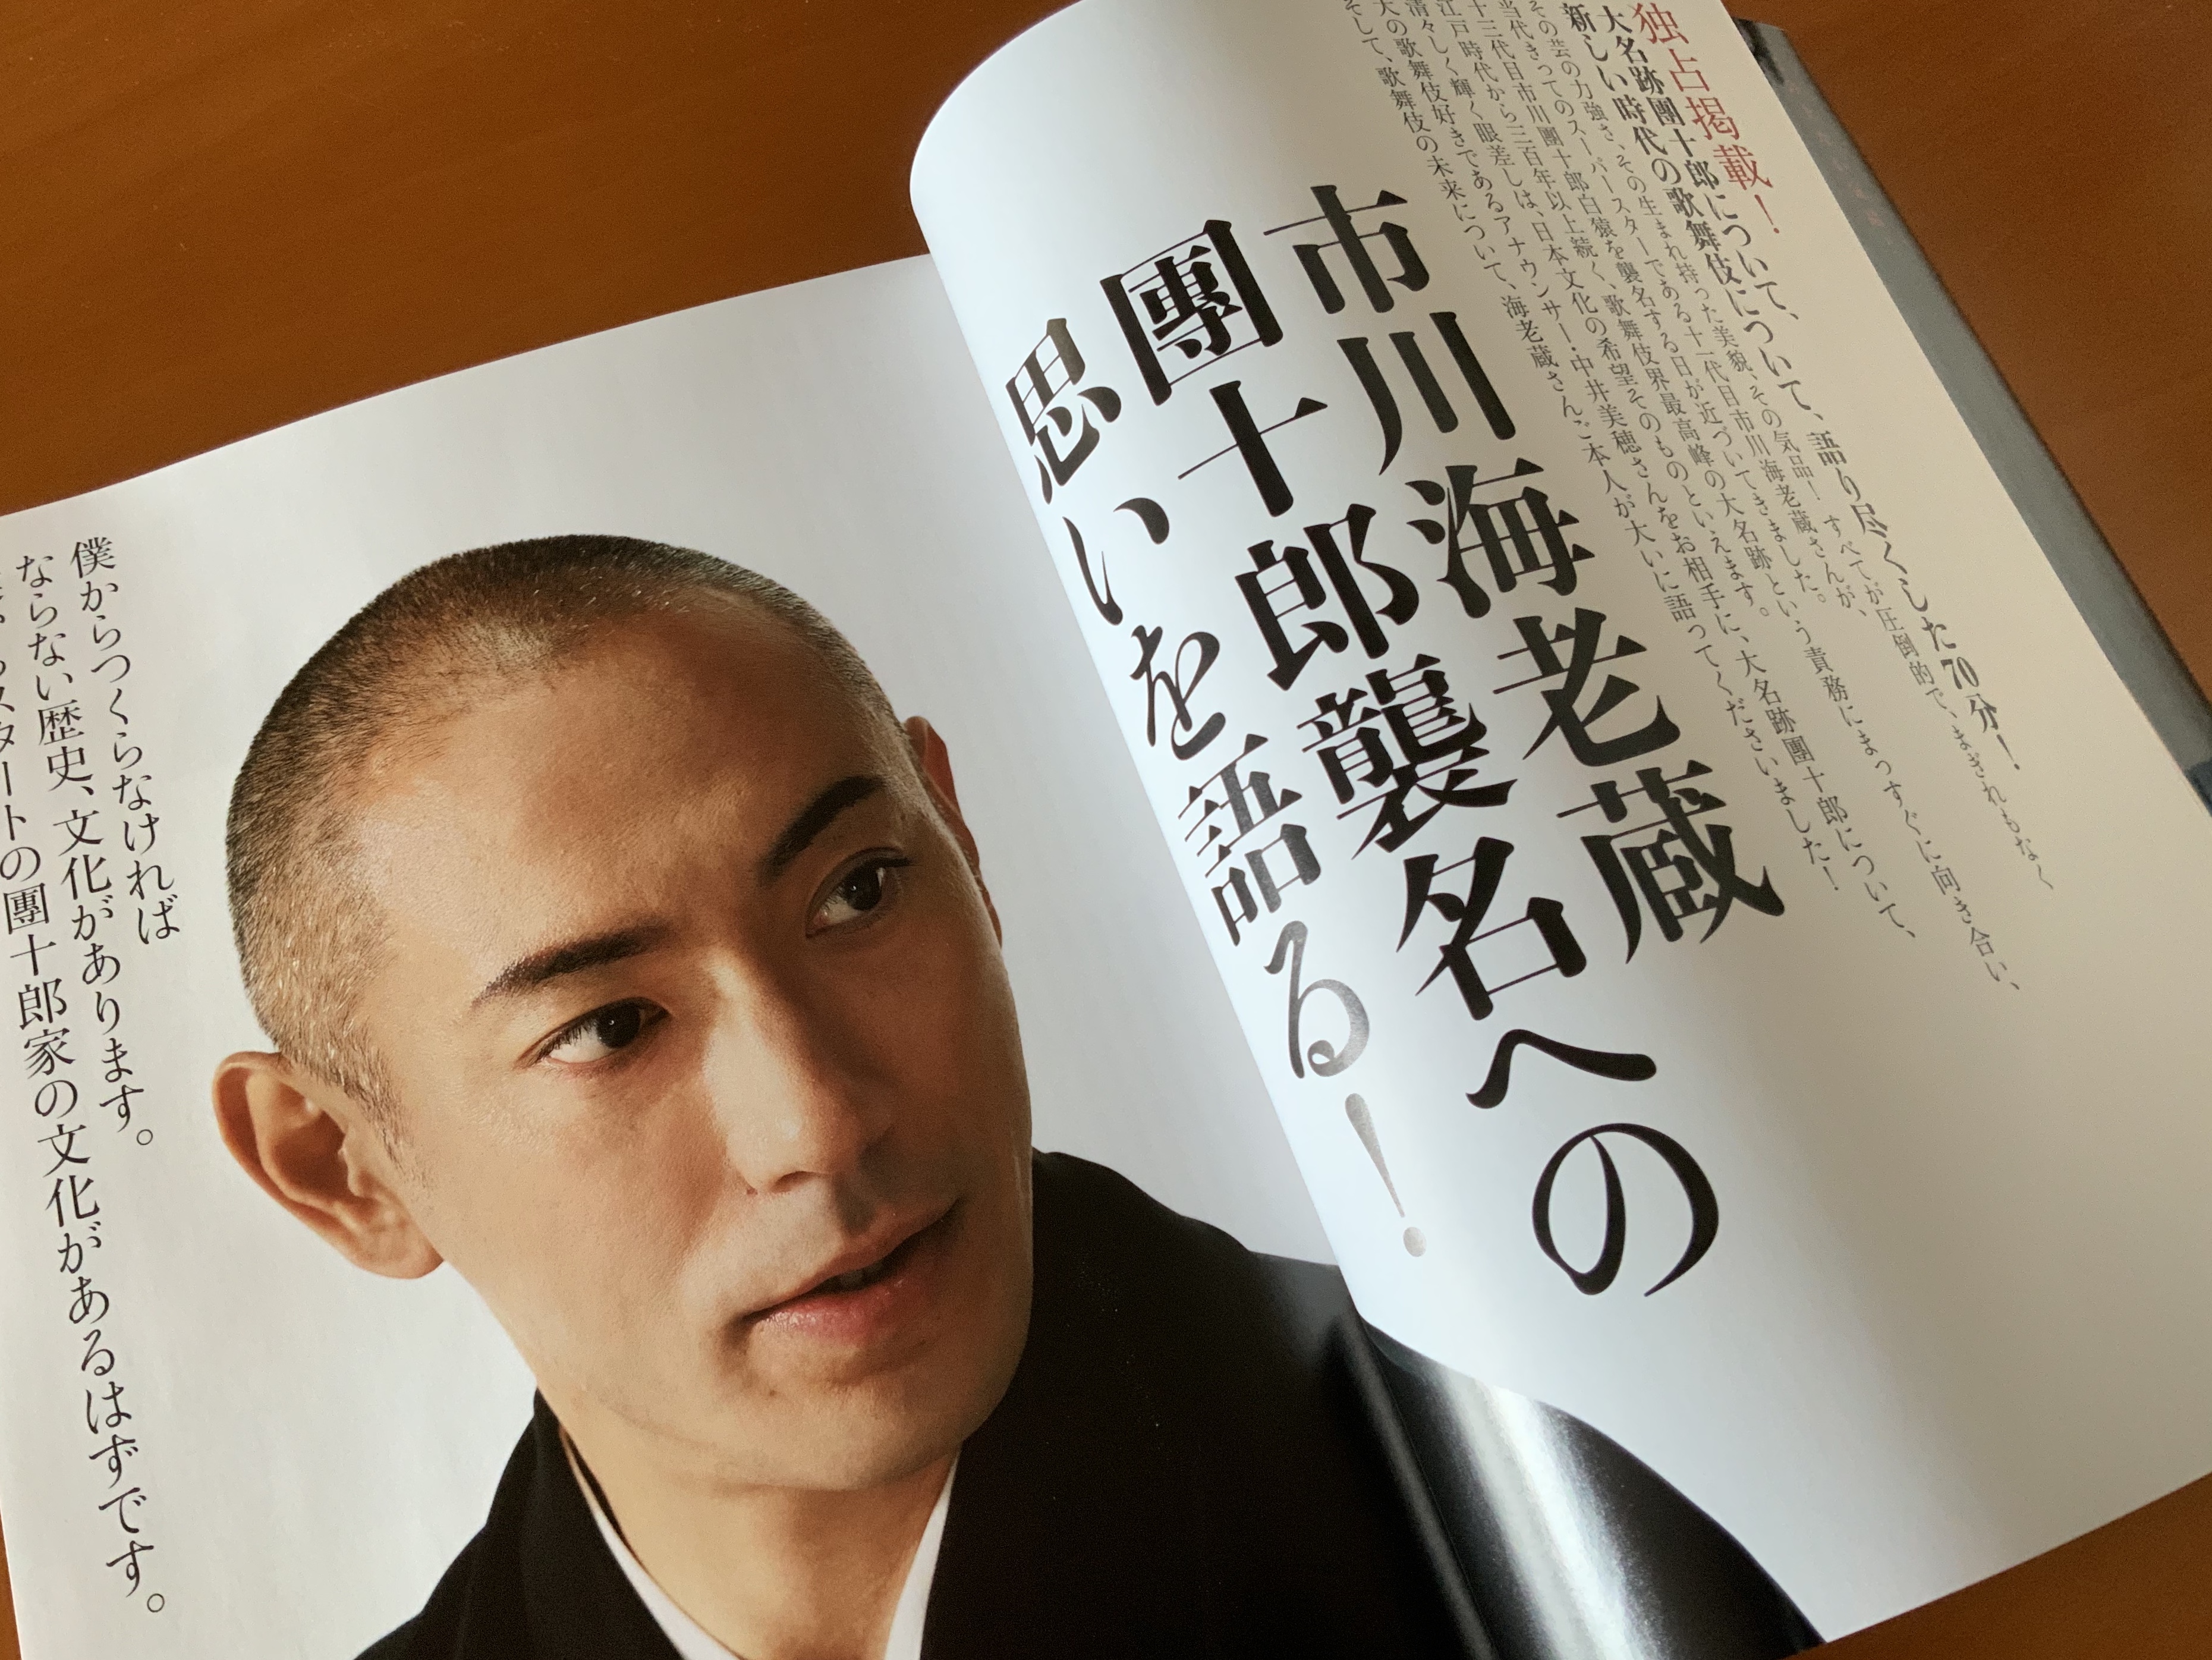 独占掲載！
大名跡團十郎について、
新しい時代の歌舞伎について、語り尽くした70分！
その芸の力強さ、その生まれ持った美貌、その気品！ すべてが圧倒的で、まぎれもなく
当代きってのスーパースターである十一代目市川海老蔵さんが、
十三代目市川團十郎白猿を襲名する日が近づいてきました。
江戸時代から三百年以上続く、歌舞伎界最高峰の大名跡という責務にまっすぐに向き合い、
清々しく輝く眼差しは、日本文化の希望そのものといえます。
大の歌舞伎好きであるアナウンサー・中井美穂さんをお相手に、大名跡團十郎について、
そして、歌舞伎の未来について、海老蔵さんご本人が大いに語ってくださいました！
市川海老蔵
團十郎襲名への
思いを語る！
僕からつくらなければ
ならない歴史、文化があります。
スタートの團十郎家の文化があるはずです。